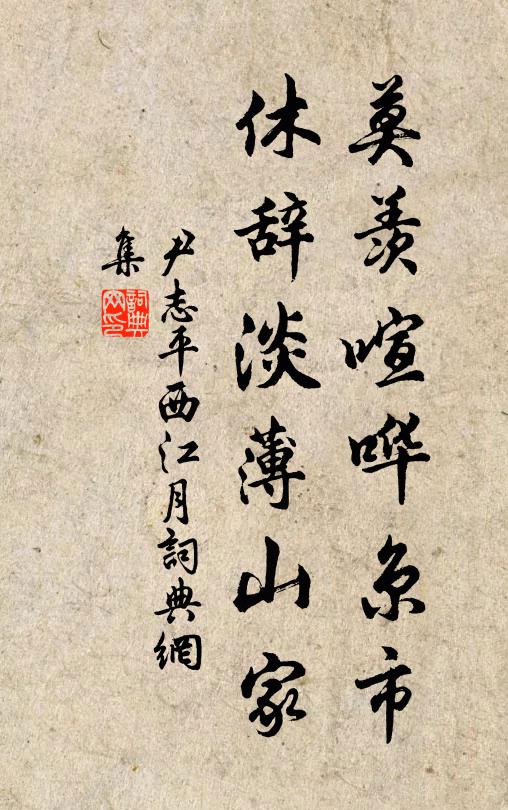 莫羡喧哗京市
休辞淡薄山家
尹志平西江月詞典網
集
詞典
网印